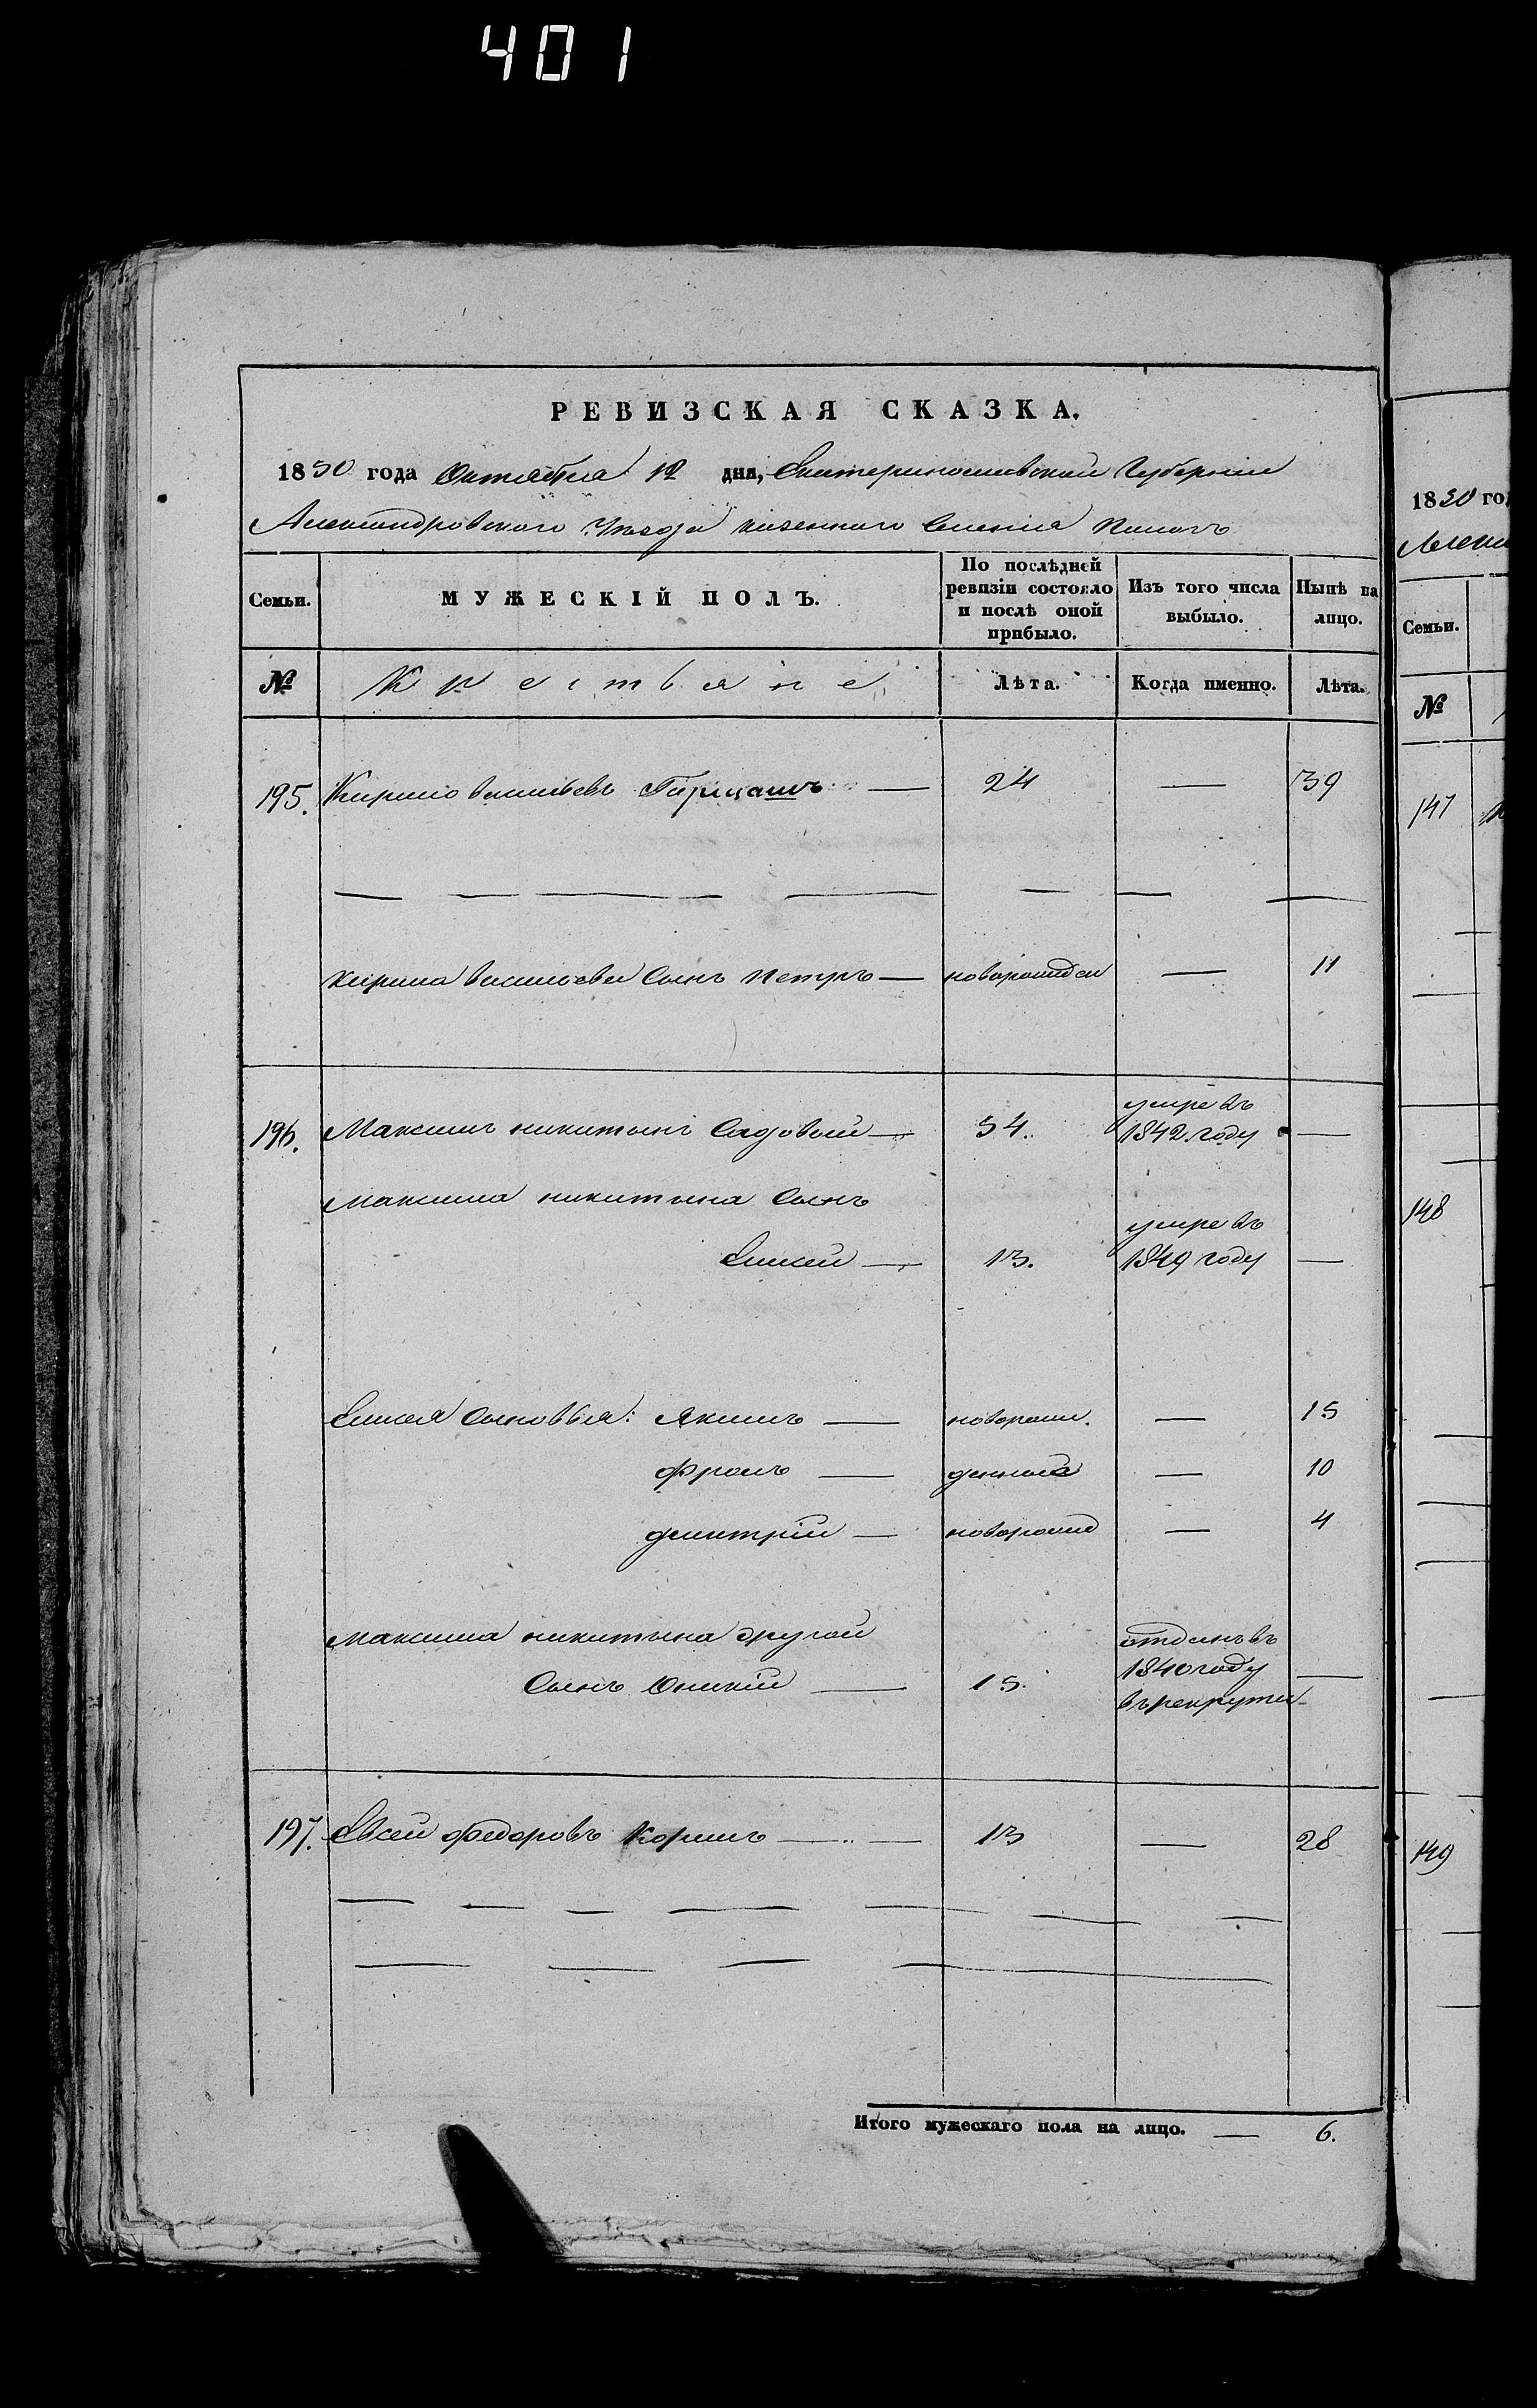 401
РЕВИЗСКАЯ СКАЗКА.
1850 года Октября 12 дня, Екатеринославской Губернiи
Александровского Уѣзда казенного Селенiя Пологъ
Семьи. МУЖЕСКIЙ ПОЛЪ. По послѣдней ревизiи состояло и послѣ оной прибыло. Изъ того числа выбыло. Нынѣ на лицо.
№ Крестьяне Лѣта. Когда именно. Лѣта.
195. Кирило васильевъ — 24 — 39
кирила васильева Сынъ Петръ — новорожден — 11
196. Максимъ никитынъ Садовый — 54. умре въ 1842 году —
Максима никитына Сынъ
Елисей — 13. умре въ 1849 году —
Елисея Сыновья: Якимъ — новорож. — 15
Фролъ — денныя — 10
дмитрiй — новорожд — 4
Максима никитына другой
Сынъ Оникiй — 15. отданъ въ 1840 году въ рекруты —
197. Евсей Федоровъ Коржъ — 13 — 28
Итого мужескаго пола на лицо. — 6.
1850 го
Семьи.
№
147
148
149